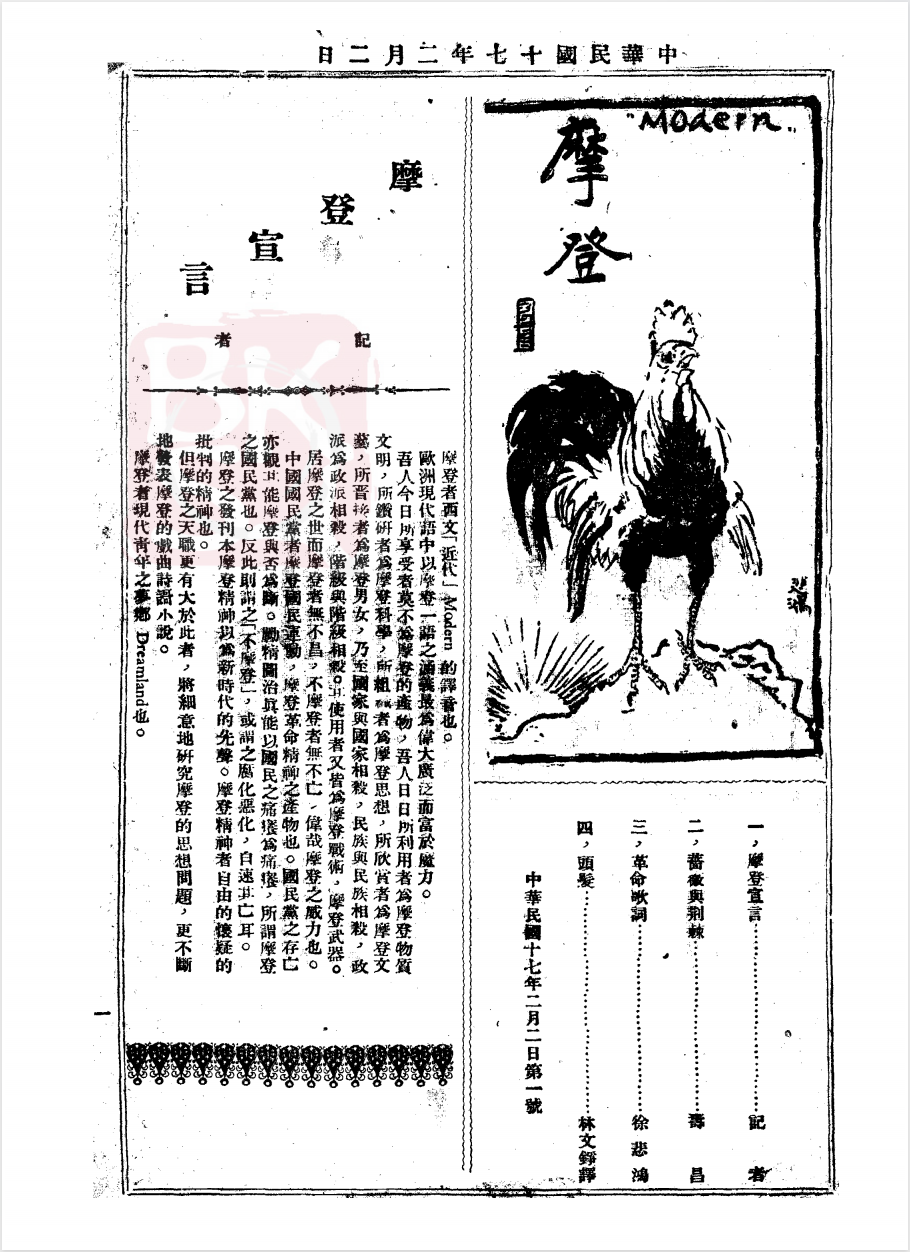 中華民國十七年二月二日
"Modern"
摩登
悲鴻
一，摩登宣言……記者
二，薔薇與荆棘……壽昌
三，革命歌詞……徐悲鴻
四，頭髮……林文錚譯
中華民國十七年二月二日第一號
摩登宣言
記者
摩登者西文「近代」Modern 的譯音也。
歐洲現代語中以摩登一語之涵義最爲偉大廣泛而富於魔力。
吾人今日所享受者莫不爲摩登的產物，吾人日日所利用者爲摩登物質
文明，所鑽研者爲摩登科學，所組織者爲摩登思想，所欣賞者爲摩登文
藝，所晋接者爲摩登男女，乃至國家與國家相殺，民族與民族相殺，政
派爲政派相殺，階級與階級相殺。其使用者又皆爲摩登戰術，摩登武器。
居摩登之世而摩登者無不昌，不摩登者無不亡，偉哉摩登之威力也。
中國國民黨者摩登國民運動，摩登革命精神之產物也。國民黨之存亡
亦觀其能摩登與否爲斷。勵精圖治眞能以國民之痛癢爲痛癢，所謂摩登
之國民黨也。反此則謂之「不摩登」，或謂之腐化惡化，自速其亡耳。
摩登之發刊本摩登精神以爲新時代的先聲。摩登精神者自由的懷疑的
批判的精神也。
但摩登之天職更有大於此者，將細意地研究摩登的思想問題，更不斷
地發表摩登的戲曲詩謌小說。
摩登者現代靑年之夢鄉 Dreamland 也。
一
BK